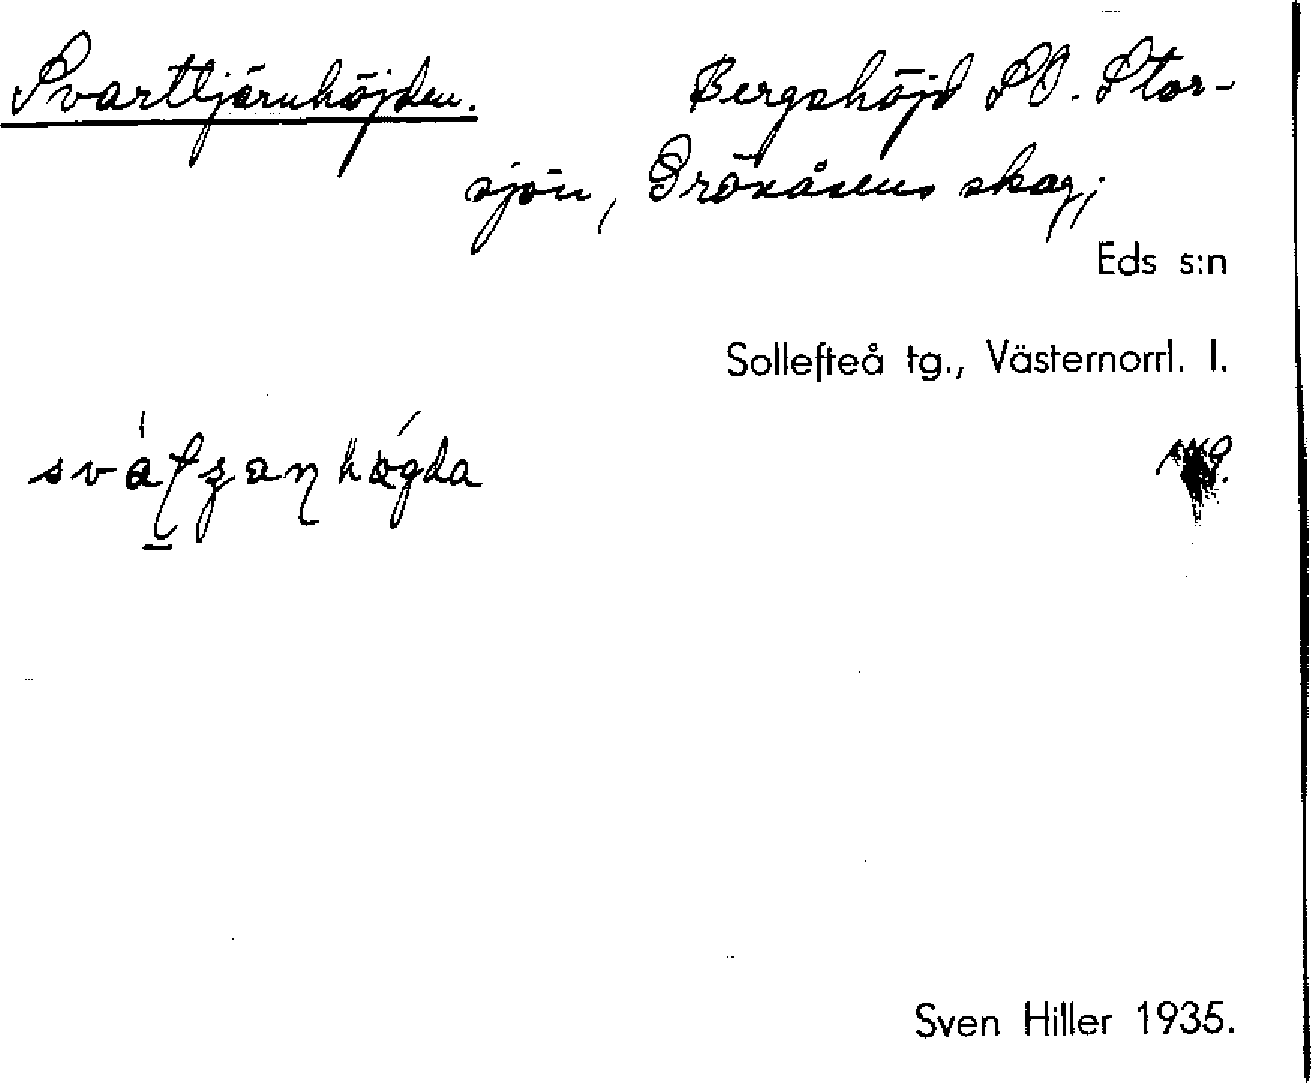 Svarttjärnhöjden. Bergshöjd SO. Stor-
sjön, Grönåsens skog;
Eds s:n
Sollefteå tg., Västernorrl. l.
Sven Hiller 1935.